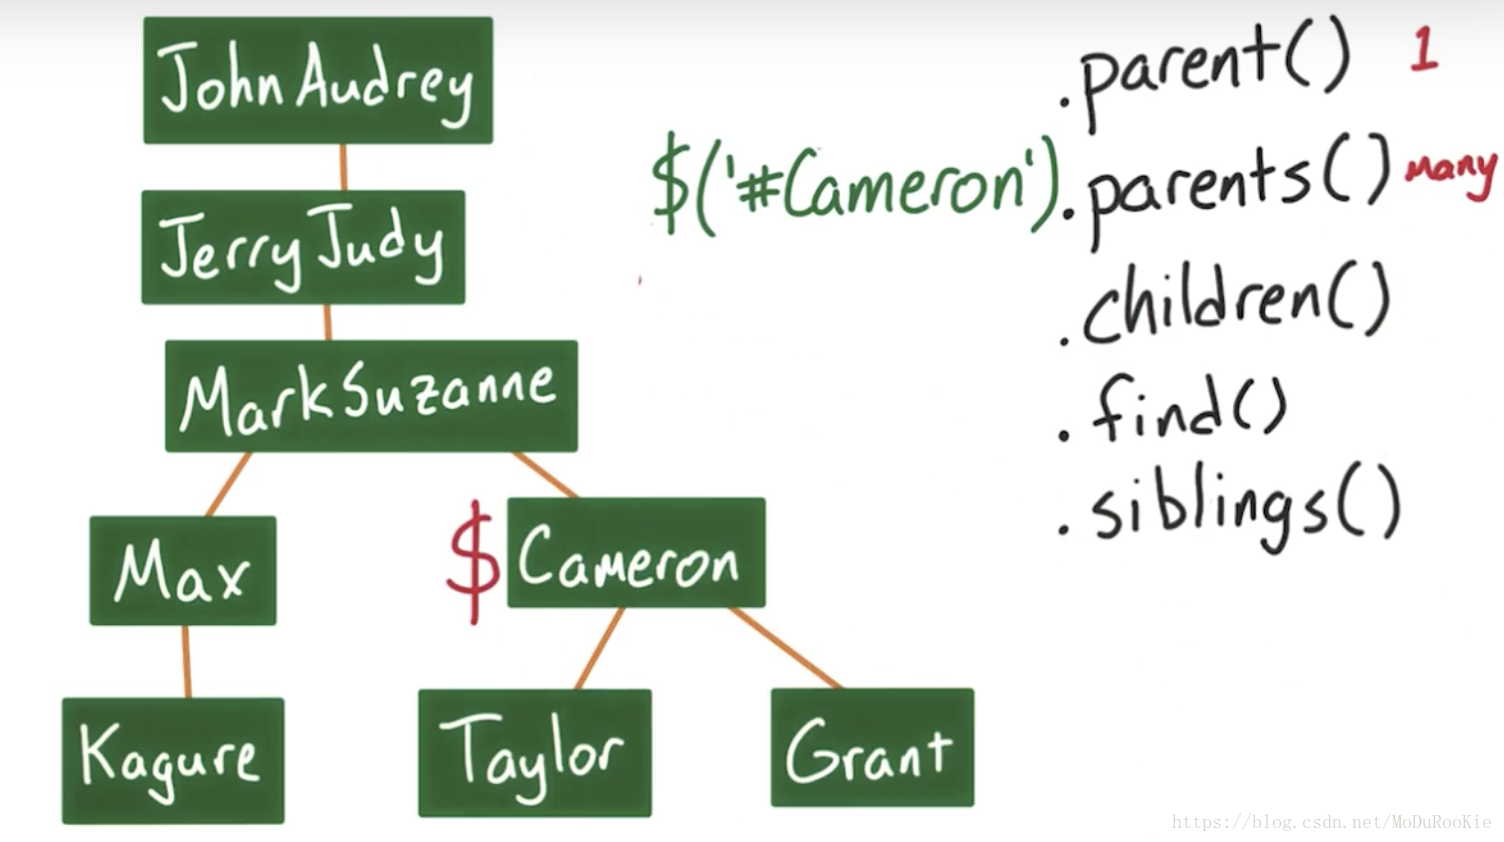 John Audrey
Jerry Judy
Mark Suzanne
Max
$ Cameron
Kagure
Taylor
Grant
$('#Cameron')
.parent() 1
.parents() many
.children()
.find()
.siblings()
https://blog.csdn.net/MoDuRooKie